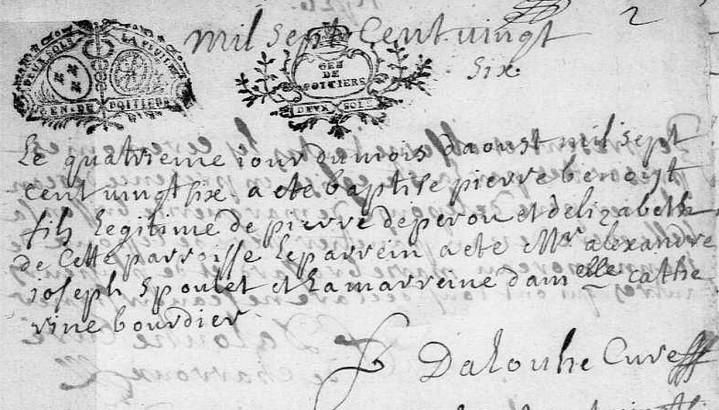 2
mil sept Cent vingt
six
DEUX SOLS LA FEUILLE
GEN DE POITIERS
GEN
DE
POITIERS
DEUX SOLS
Le quatrieme iour dumois daoust mil sept
cent vingt six a ete baptise pierre benoist
fils legitime de pierre deperou et delizabeth
de Cette parroisse Leparrein a ete Mr alexandre
ioseph Spoulet et Lamarreine damelle cathe
rine bourdier
Dalouhe Cure